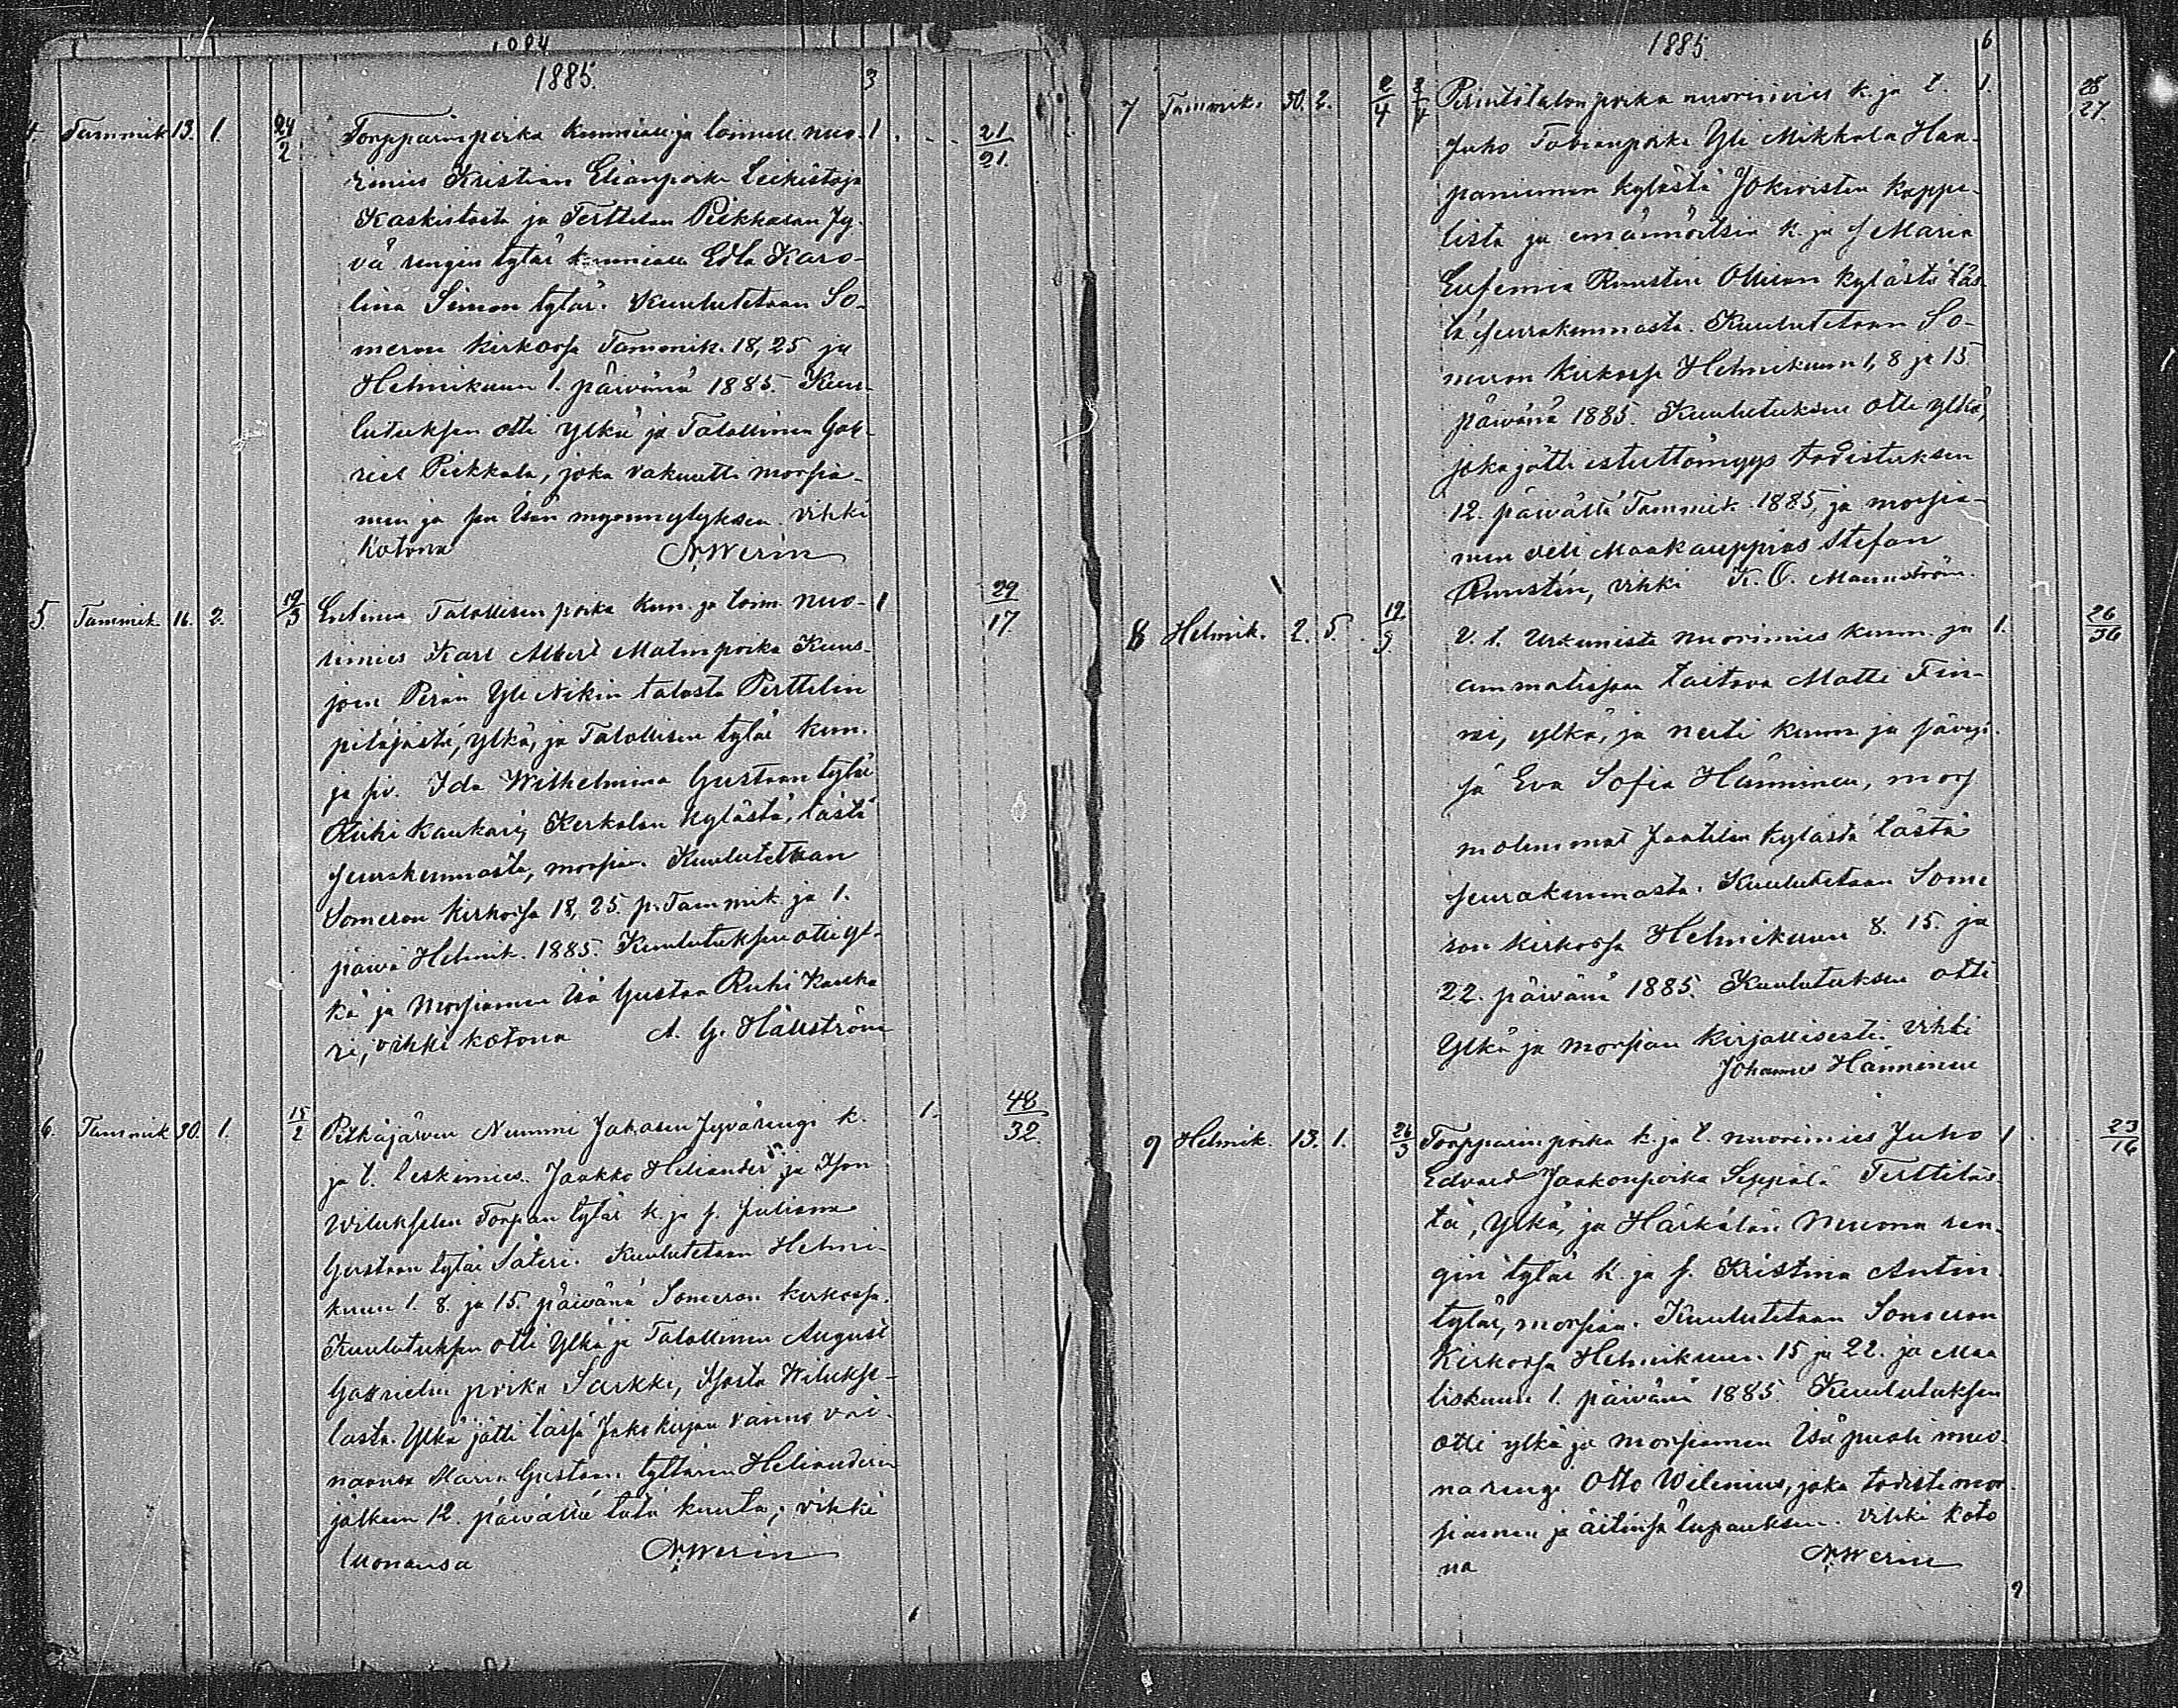 1084
1885. 3
4. Tammik 13. 1. 24/2 Torpparinpoika kunniall. ja toimell. nuo- 1 21/21.
rimies Kristian Elianpoika Leikistöja
Kaskistosta ja Terttelan Pickkasan Jy-
vä rengin tytär kunniall Edla Karo-
lina Simon tytär. Kuulutetaan So-
meron kirkossa Tammik. 18, 25 ja
Helmikuun 1. päivänä 1885. Kuu-
lutuksen otti ylkä ja Talollinen Gab-
riel Pickkala, joka vakuutti morsia-
men ja sen Isän myönnytyksen. Vihki
kotona A. Werin
5. Tammik. 16. 2. 19/3 Entinen Talollisen poika kun. ja toim. nuo- 1 29/17.
rimies Karl Albert Matinpoika Kuus-
joen Perän Yli Nikin talosta Perttelin
pitäjästä, ylkä, ja Talollisen tytär kun.
ja siv. Ida Wilhelmina Gustaan tytär
Ruhi Kaukari, Kerkolan kylästä, tästä
seurakunnasta, morsian. Kuulutetaan
Someron kirkossa 18, 25. p. Tammik. ja 1.
päivä Helmik. 1885. Kuulutuksen otti yl-
kä ja Morsiamen Isä Gustaa Ruhi Kauka
ri, vihki kotona A. G. Hällström
6. Tammik 30. 1. 15/2 Pitkäjärven Nummi Jaakan Jyvärengi k. 1. 48/32.
ja t. leskimies Jaakko Heliander ja Ison
Wilukselan Torpan tytär k. ja s. Juliana
Gustaan tytär Säteri. Kuulutetaan Helmi-
kuun 1. 8. ja 15. päivänä Someron kirkossa.
Kuulutuksen otti Ylkä ja Talollinen August
Gabrielin poika Sarkki, Isosta Wilukse-
lasta. Ylkä jätti tässä Jako kirjan vainno vai-
naansa Maria Gustaan tyttären Helianderin
jälkeen 12. päivältä tätä kuuta; vihki
luonansa A. Werin
1885. 6
7 Tammik. 30. 2. 2/4 Perintötalon poika nuorimies k. ja t. 1. 28/27.
Juho Tobianpoika Yli Mikkola Haa-
paniemen kylästä Jokioisten kappe-
lista ja emännöitsiä k. ja s Maria
Eufemia Runstén Ollilan kylästä täs-
tä seurakunnasta. Kuulutetaan So-
meron kirkossa Helmikuun 1, 8 ja 15.
päivänä 1885. Kuulutuksen otti ylkä,
joka jätti estettömyys todistuksen
12. päivältä Tammik. 1885, ja morsia-
men veli Maakauppias Stefan
Runstén, vihki K. O. Mannström.
8 Helmik. 2. 5. 19/3 V. t. Urkunista nuorimies kunn. ja 1. 26/36
ammatissaan taitava Matti Fin-
ni, ylkä, ja neiti kunn. ja säveji-
sä Eva Sofia Hänninen, mors
molemmat Jaatilan kylästä tästä
seurakunnasta. Kuulutetaan Some
ron kirkossa Helmikuun 8. 15. ja
22. päivänä 1885. Kuulutuksen otti
Ylkä ja morsian kirjallisesti. vihki
Johannes Hänninen
9 Helmik. 13. 1. 26/3 Torpparin poika k. ja t. nuorimies Juho 1 23/16
Edvard Jaakonpoika Seppälä Terttiläs-
tä, Ylkä, ja Härkälän Muona ren-
gin tytär k. ja s. Kristina Antin-
tytär, morsian. Kuulutetaan Someron
Kirkossa Helmikuun 15 ja 22. ja Maa
liskuun 1. päivänä 1885 Kuulutuksen
otti ylkä ja morsiamen Isä puoli muo-
na rengi Otto Wilenius, joka todisti mor-
siamen ja äitinsä lupauksen. Vihki koto
na A. Werin
9